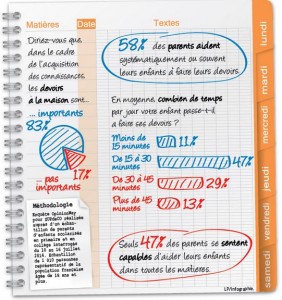 Matières Date Textes
Diriez-vous que,
dans le cadre
de l'acquisition
des connaissances,
les devoirs
à la maison sont...
... importants
83%
17%
... pas
importants
Méthodologie
Enquête OpinionWay
réalisée
auprès d'un échan-
tillon de parents
d'enfants scolarisés
en primaire et en
collège interrogés
du 10 au 16 juillet
2014. Echantillon
de 1 010 personnes
représentatif de la
population française
âgée de 18 ans et
plus.
58% des parents aident
systématiquement ou souvent
leurs enfants à faire leurs devoirs.
En moyenne, combien de temps
par jour votre enfant passe-t-il
à faire ses devoirs ?
Moins de
15 minutes
11%
De 15 à 30
minutes
47%
De 30 à 45
minutes
29%
Plus de
45 minutes
13%
Seuls 47% des parents se sentent
capables d'aider leurs enfants
dans toutes les matières.
LP/Infographie
lundi
mardi
mercredi
jeudi
vendredi
samedi